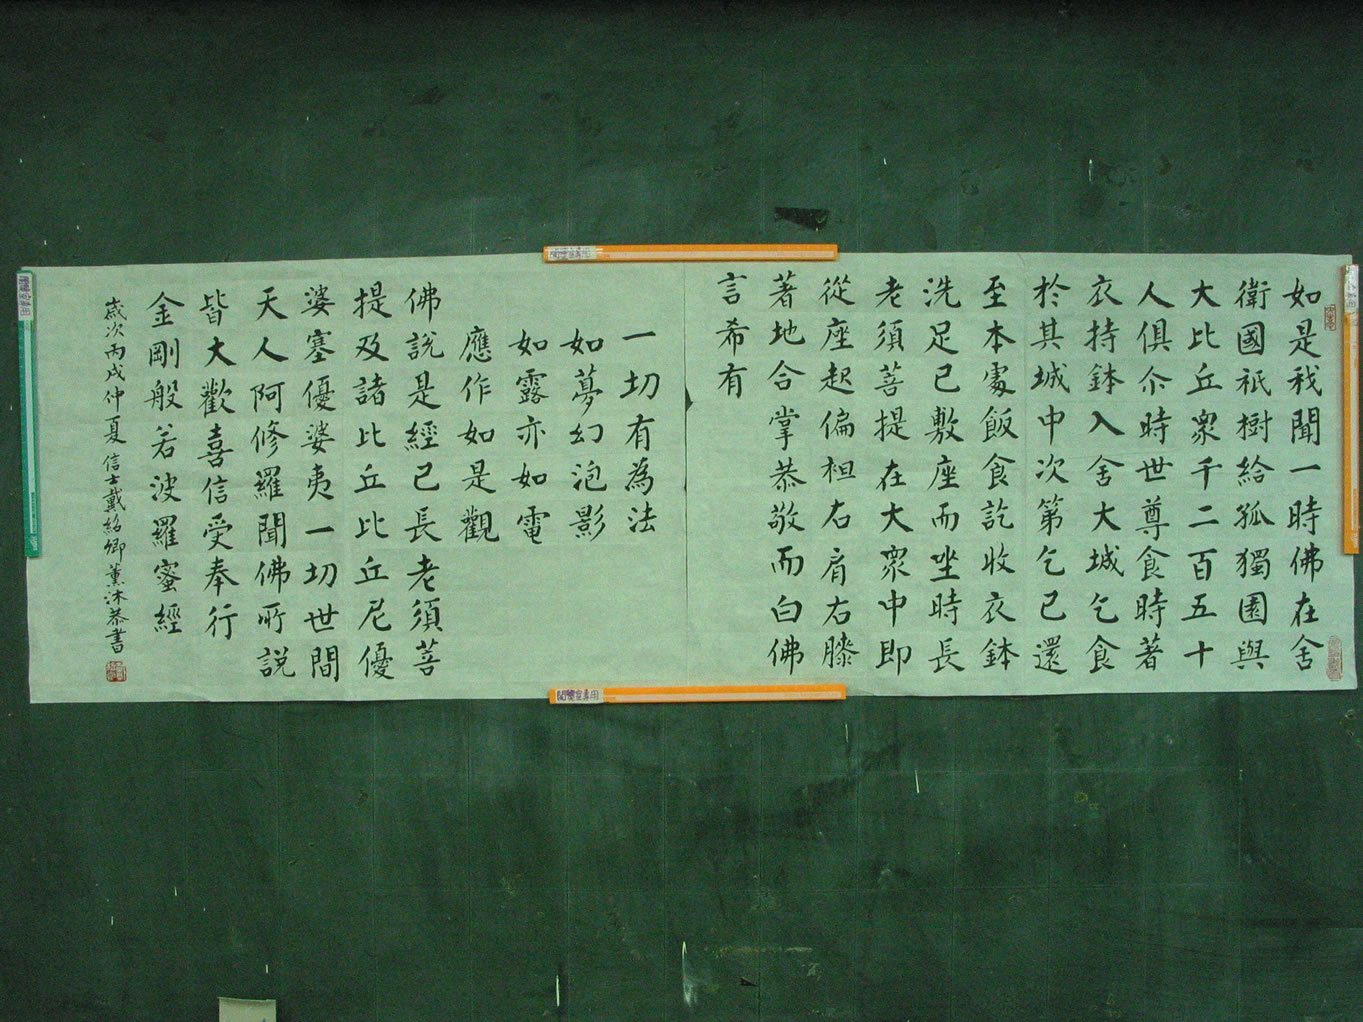 如是我聞一時佛在舍
衛國祇樹給孤獨園與
大比丘眾千二百五十
人俱尒時世尊食時著
衣持鉢入舍大城乞食
於其城中次第乞已還
至本處飯食訖收衣鉢
洗足已敷座而坐時長
老須菩提在大眾中即
從座起偏袒右肩右膝
著地合掌恭敬而白佛
言希有
一切有為法
如夢幻泡影
如露亦如電
應作如是觀
佛說是經已長老須菩
提及諸比丘比丘尼優
婆塞優婆夷一切世間
天人阿修羅聞佛所說
皆大歡喜信受奉行
金剛般若波羅蜜經
歲次丙戌仲夏信士戴紹卿薰沐恭書